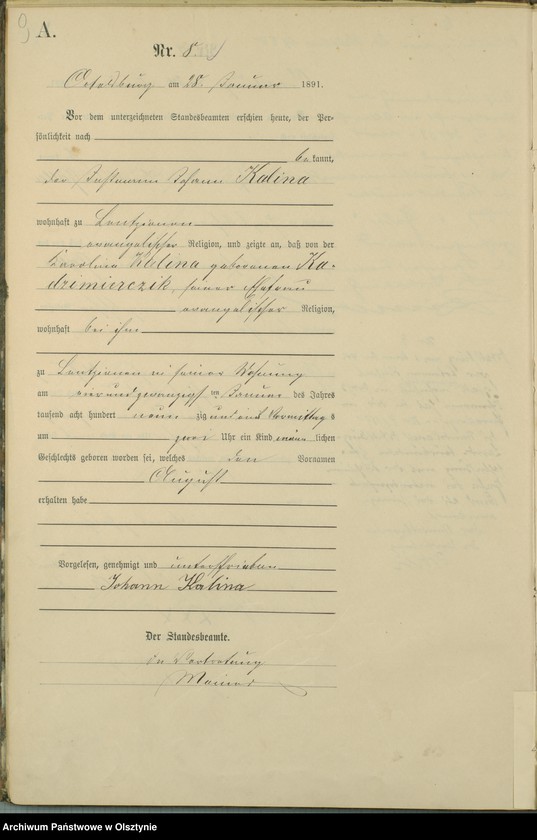 9
A.
Nr. 8
Ortelsburg am 28. Januar 1891.
Vor dem unterzeichneten Standesbeamten erschien heute, der Per-
sönlichkeit nach
bekannt,
der Instmann Johann Kalina
wohnhaft zu
evangelischer Religion, und zeigte an, daß von der
Karoline Kalina geborenen Ka-
dzimierczik, seiner Ehefrau
evangelischer Religion,
wohnhaft bei ihm
zu in seiner Wohnung
am vierundzwanzigsten Januar des Jahres
tausend acht hundert neunzig und eins Vormittags
um zwei Uhr ein Kind männlichen
Geschlechts geboren worden sei, welches den Vornamen
August
erhalten habe
Vorgelesen, genehmigt und unterschrieben
Johann Kalina
Der Standesbeamte.
In Vertretung
Archiwum Państwowe w Olsztynie